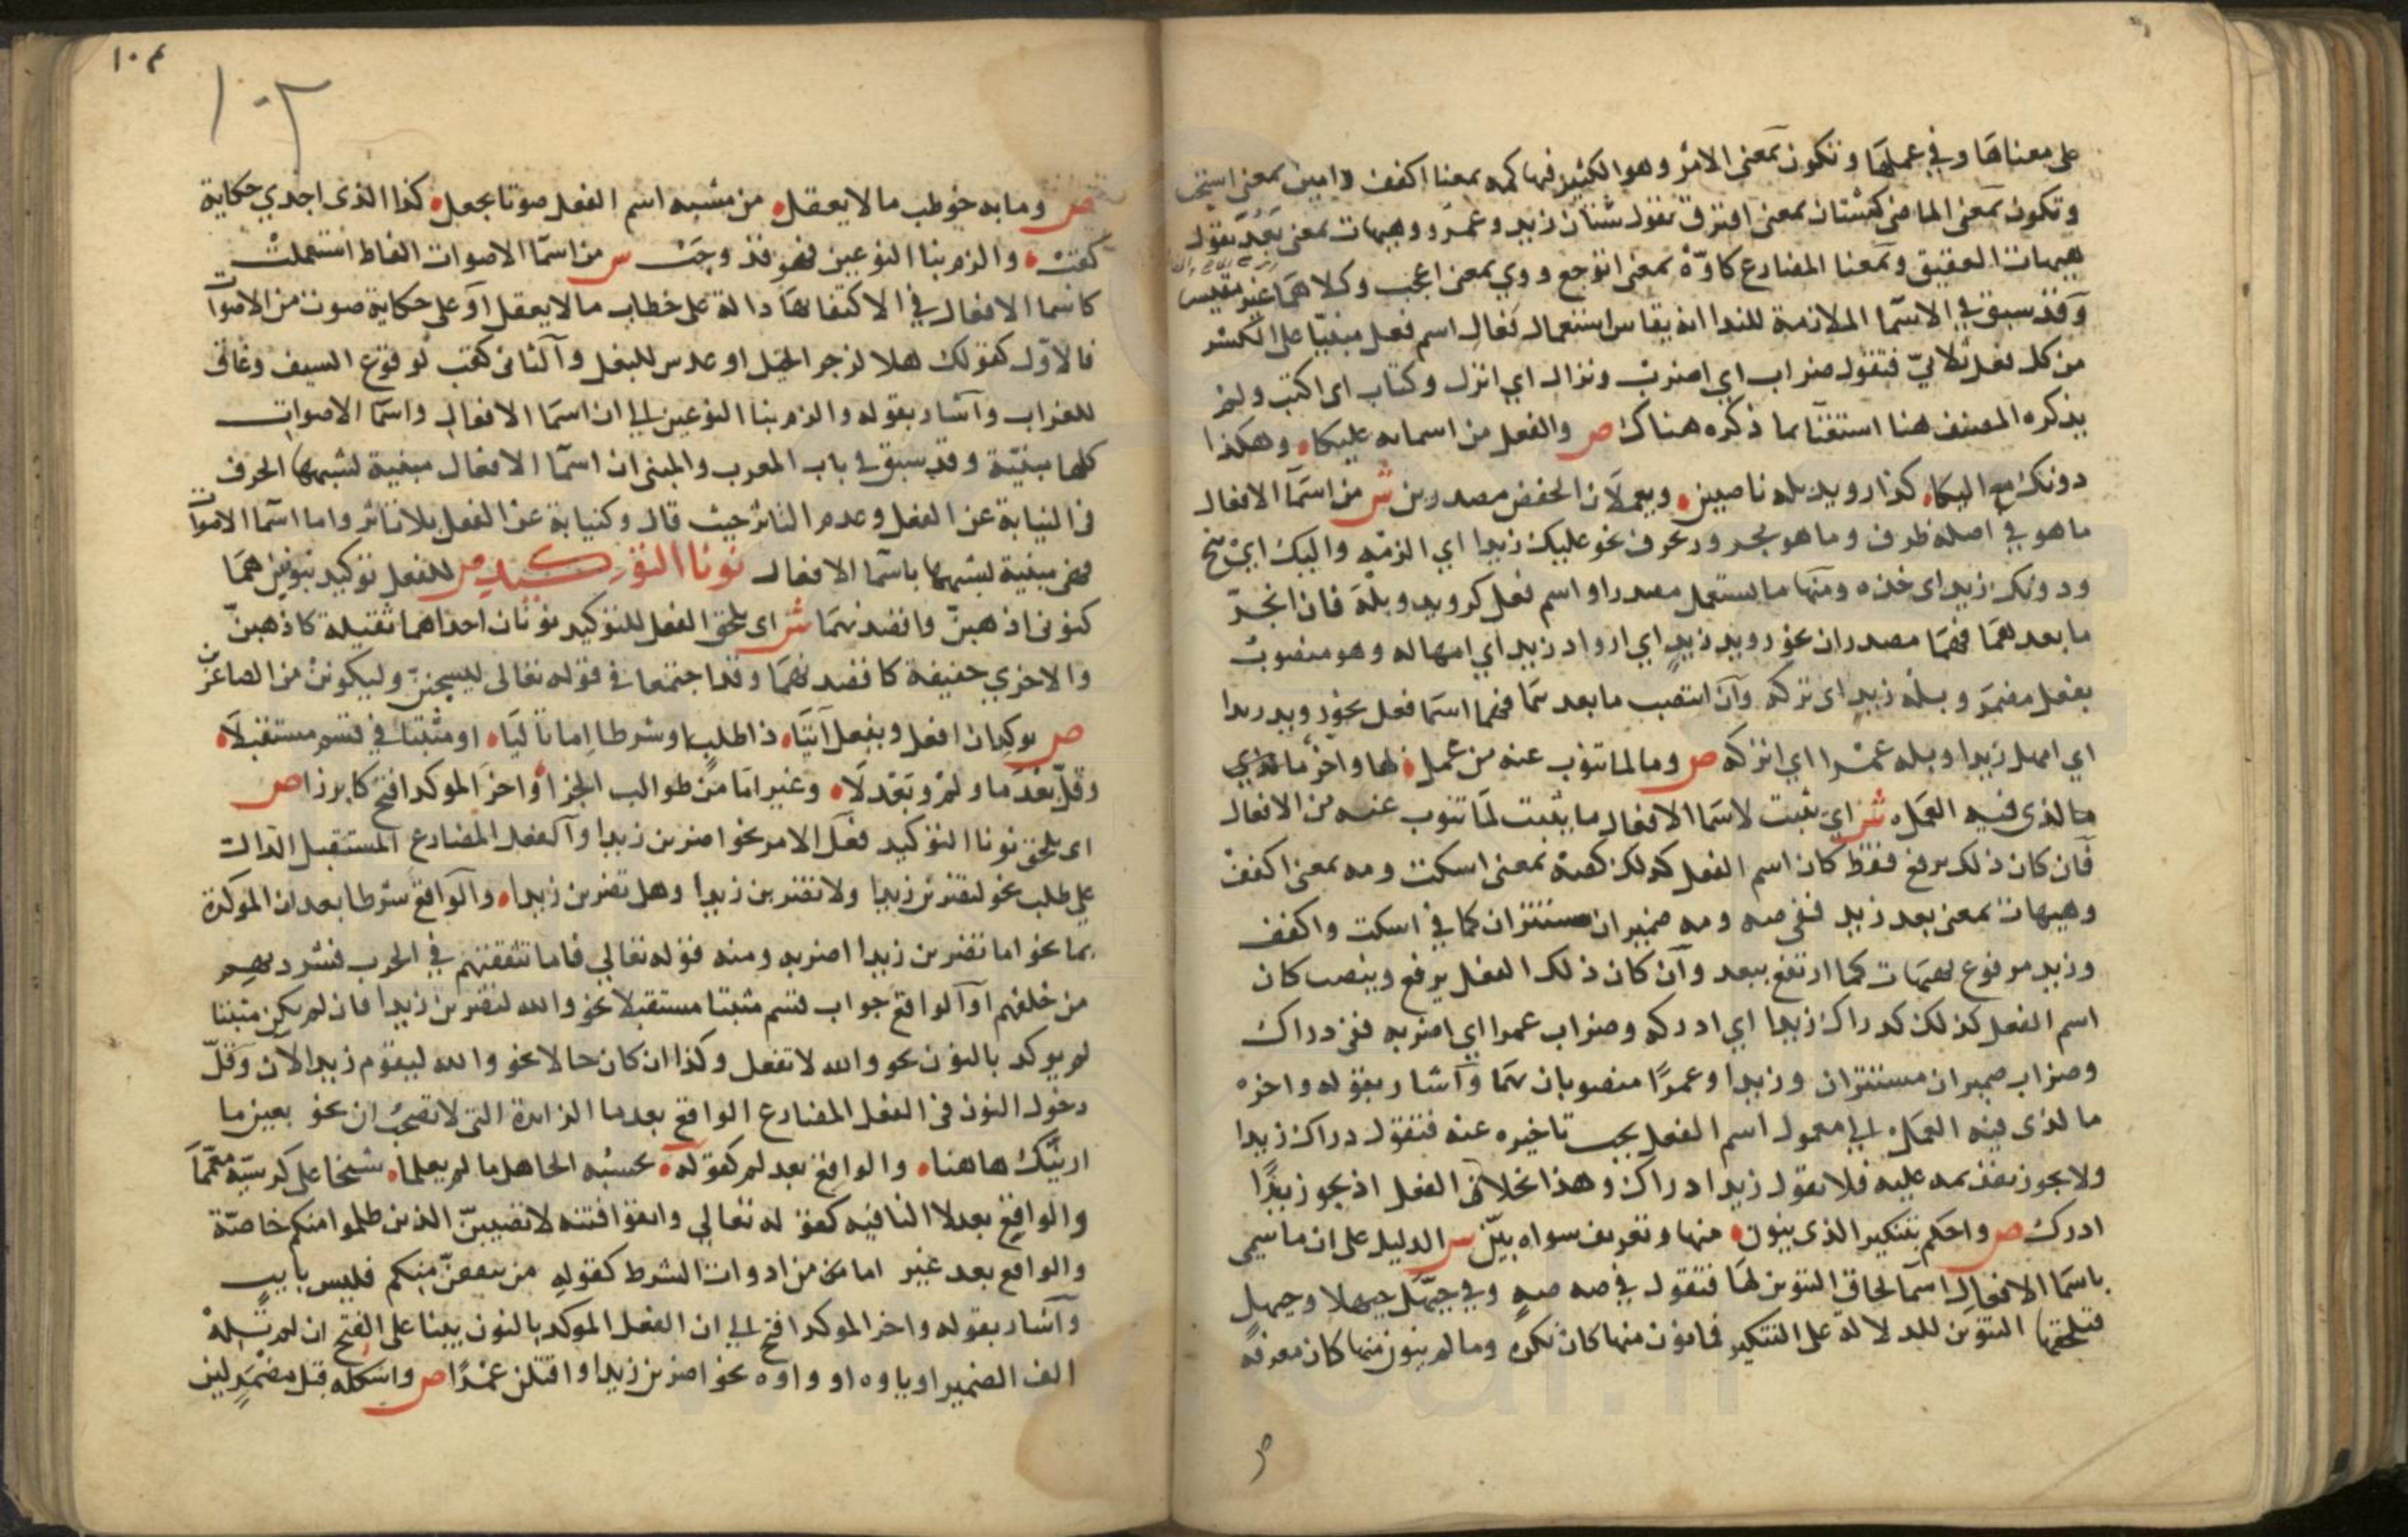 على معناها وفي عملها وتكون بمعنى الامر وهو الكثير فيها كمه بمعنا اكفف وامين بمعنى استجب
وتكون بمعنى الماضي كشتان بمعنى افترق تقول شتان زيد وعمرو وهيهات بمعنى بعد تقول
هيهات العقيق وبمعنا المضارع كاوّه بمعنى اتوجع ووي بمعنى اعجب وكلاهما غير مقيس
وقد سبق في الاسما الملازمة للندا انه يقاس استعمال فعال اسم فعل مبنيّا على الكسر
من كل فعل ثلاثيّ فتقول ضراب اي اضرب ونزال اي انزل وكتاب اى اكتب ولم
يذكره المصنف هنا استغنا بما ذكره هناك ص والفعل من اسمائه عليكا وهكذا
دونك مع اليكا كذا رويد بله ناصبين ويعملان الخفض مصدرين ش من اسما الافعال
ما هو في اصله ظرف وما هو مجرور بحرف نحو عليك زيدا اي الزمه واليك اي تنح
ودونك زيدا اى خذه ومنها ما يستعمل مصدرا واسم فعل كرويد وبله فان انجرّ
ما بعدهما فهما مصدران نحو رويد زيد اي ارواد زيد اي امهاله وهو منصوب
بفعل مضمر وبله زيد اى تركه وان انتصب ما بعدهما فهما اسما فعل نحو رويد زيدا
اي امهل زيدا وبله عمرا اي اتركه ص وما لما تنوب عنه من عمل لها واخر ما لذي
ما لذى فيه العمل ش اي يثبت لاسما الافعال ما يثبت لما تنوب عنه من الافعال
فان كان ذلك يرفع فقط كان اسم الفعل كذلك كصه بمعنى اسكت ومه بمعنى اكفف
وهيهات بمعنى بعد زيد ففي صه ومه ضميران مستتران كما في اسكت واكفف
وزيد مرفوع بهيهات كما ارتفع ببعد وان كان ذلك الفعل يرفع وينصب كان
اسم الفعل كذلك كدراك زيدا اي ادركه وضراب عمرا اي اضربه ففي دراك
وضراب ضميران مستتران وزيدا وعمرًا منصوبان بهما وآشار بقوله واخر
ما لذى فيه العمل الى معمول اسم الفعل يجب تاخيره عنه فتقول دراك زيدا
ولا يجوز تقديمه عليه فلا تقول زيدا دراك وهذا بخلاف الفعل اذ يجوز زيدًا
ادرك ص واحكم بتنكير الذى ينون منها وتعريف سواه بيّن س الدليل على ان ما سمى
باسما الافعال اسما لحاق التنوين لها فتقول في صه صهٍ وفي حيّهل حيهلا وحيهلٍ
فيلحقها التنوين للدلالة على التنكير فما نون منها كان نكره وما لم ينون منها كان معرفه
ص وما به خوطب ما لا يعقل من مشبه اسم الفعل صوتا يجعل كذا الذى اجدي حكاية
كقب والزم بنا النوعين فهو قد وجب س من اسما الاصوات الفاظ استعملت
كاسما الافعال في الاكتفا بها دالة على خطاب ما لا يعقل او على حكاية صوت من الاصوات
فالاول كقولك هلا لزجر الخيل او عدس للبغل والثانى كقب لوقوع السيف وغاق
للغراب وآشار بقوله والزم بنا النوعين الى ان اسما الافعال واسما الاصوات
كلها مبنيّة وقد سبق في باب المعرب والمبنى ان اسما الافعال مبنية لشبهها الحرف
في النيابة عن الفعل وعدم التاثر حيث قال وكنيابة عن الفعل بلا تاثر واما اسما الاصوات
فهى مبنية لشبهها باسما الافعال نونا التوكيد ص للفعل توكيد بنونين هما
كنونى اذهبنّ واقصدنهما ش اى يلحق الفعل للتوكيد نونان احداهما ثقيلة كاذهبنّ
والاخري خفيفة كاقصدنهما وقد اجتمعا في قوله تعالى ليسجننّ وليكونن من الصاغرين
ص يوكدان افعل ويفعل آتيا ذا طلب او شرطا اما تاليا او مثبتا في قسم مستقبلا
وقلّ بعد ما ولم وبعد لا وغير اما من طوالب الجزا واخر الموكد افتح كابرزا ص
اى يلحق نونا التوكيد فعل الامر نحو اضربن زيدا والفعل المضارع المستقبل الدال
علي طلب نحو لتضربن زيدا ولا تضربن زيدا وهل تضربن زيدا والواقع شرطا بعد ان الموكدة
بما نحو اما تضربن زيدا اضربه ومنه قوله تعالي فاما تثقفنهم في الحرب فشرد بهم
من خلفهم او الواقع جواب قسم مثبتا مستقبلا نحو والله لتضربن زيدا فان لم يكن مثبتا
لم يوكد بالنون نحو والله لا تفعل وكذا ان كان حالا نحو والله ليقوم زيد الان وقلّ
دخول النون في الفعل المضارع الواقع بعد ما الزايدة التى لا تصحب ان نحو بعين ما
ارينّك هاهنا والواقع بعد لم كقوله يحسبه الجاهل ما لم يعلما شيخا على كرسيّه معمّما
والواقع بعد لا النافيه كقوله تعالي واتقوا فتنه لا تصيبنّ الذين ظلموا منكم خاصّة
والواقع بعد غير اما من ادوات الشرط كقوله من يثقفنّ منكم فليس بآيب
وآشار بقوله واخر الموكد افتح الي ان الفعل الموكد بالنون يبنا على الفتح ان لم تله
الف الضمير او ياوه او واوه نحو اضربن زيدا واقتلن عمرًا ص واشكله قبل مضمر لين